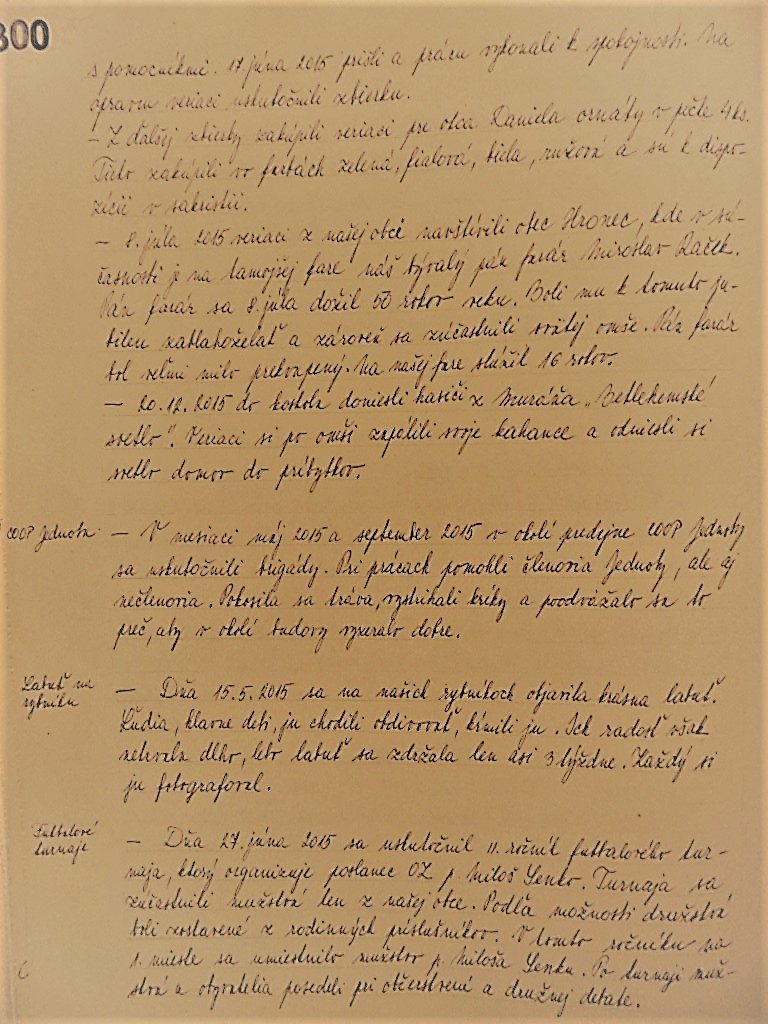 300
s pomocníkmi. 17. júna 2015 prišli a prácu vykonali k spokojnosti. Na
opravu veriaci uskutočnili zbierku.
- Z ďalšej zbierky zakúpili veriaci pre otca Daniela ornáty v počte 4 ks.
Tieto zakúpili vo farbách zelená, fialová, biela, ružová a sú k dispo-
zícii v sakristii.
- 8. júla 2015 veriaci z našej obce navštívili obec Hronec, kde v sú-
časnosti je na tamojšej fare náš bývalý pán farár Miroslav Raček.
Pán farár sa 8. júla dožil 50 rokov veku. Boli mu k tomuto ju-
bileu zablahoželať a zároveň sa zúčastnili svätej omše. Pán farár
bol veľmi milo prekvapený. Na našej fare slúžil 16 rokov.
- 20.12.2015 do kostola doniesli hasiči z Muráňa „Betlehemské
svetlo". Veriaci si po omši zapálili svoje kahance a odniesli si
svetlo domov do príbytkov.
COOP Jednota - V mesiaci máj 2015 a september 2015 v okolí predajne COOP Jednoty
sa uskutočnili brigády. Pri prácach pomohli členovia Jednoty, ale aj
nečlenovia. Pokosila sa tráva, vystrihali kríky a poodvážalo sa to
preč, aby v okolí budovy vyzeralo dobre.
Labuť na
rybníku
- Dňa 15.5.2015 sa na našich rybníkoch objavila krásna labuť.
Ľudia, hlavne deti, ju chodili obdivovať, kŕmili ju. Ich radosť však
netrvala dlho, lebo labuť sa zdržala len asi 3 týždne. Každý si
ju fotografoval.
Futbalové
turnaje
- Dňa 27. júna 2015 sa uskutočnil 11. ročník futbalového tur-
naja, ktorý organizuje poslanec OZ p. Miloš Senko. Turnaja sa
zúčastnili mužstvá len z našej obce. Podľa možností družstvá
boli zostavené z rodinných príslušníkov. V tomto ročníku na
1. mieste sa umiestnilo mužstvo p. Miloša Senku. Po turnaji muž-
stvá a obyvatelia posedeli pri občerstvení a družnej debate.